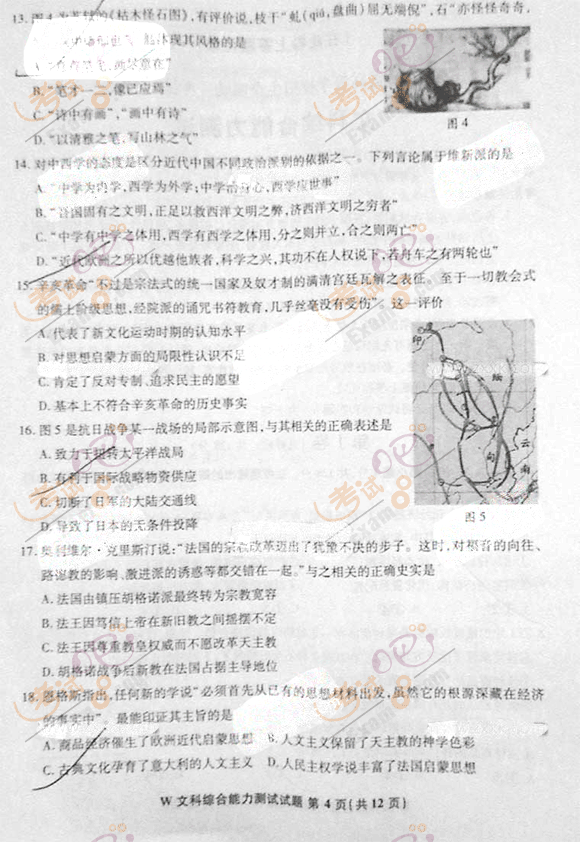 13. 图4为苏轼的《枯木怪石图》,有评价说,枝干“虬(qiú,盘曲)屈无端倪”,石“亦怪怪奇奇,
体现其风格的是
意在”
B. “笔才一二,像已应焉”
C. “诗中有画”,“画中有诗”
D. “以清雅之笔,写山林之气”
图4
14. 对中西学的态度是区分近代中国不同政治派别的依据之一。下列言论属于维新派的是
A. “中学为内学,西学为外学;中学治身心,西学应世事”
B. “吾国固有之文明,正足以救西洋文明之弊,济西洋文明之穷者”
C. “中学有中学之体用,西学有西学之体用,分之则并立,合之则两亡”
D. “近代欧洲之所以优越他族者,科学之兴,其功不在人权说下,若舟车之有两轮也”
15. 辛亥革命“不过是宗法式的统一国家及奴才制的满清宫廷瓦解之表征。至于一切教会式
的儒士阶级思想,经院派的诵咒书符教育,几乎丝毫没有受伤”。这一评价
A. 代表了新文化运动时期的认知水平
B. 对思想启蒙方面的局限性认识不足
C. 肯定了反对专制、追求民主的愿望
D. 基本上不符合辛亥革命的历史事实
印
缅
甸
云
南
16. 图5是抗日战争某一战场的局部示意图,与其相关的正确表述是
A. 致力于扭转太平洋战局
B. 有利于国际战略物资供应
C. 切断了日军的大陆交通线
D. 导致了日本的无条件投降
图5
17. 奥利维尔·克里斯汀说:“法国的宗教改革迈出了犹豫不决的步子。这时,对福音的向往、
路德教的影响、激进派的诱惑等都交错在一起。”与之相关的正确史实是
A. 法国由镇压胡格诺派最终转为宗教宽容
B. 法王因笃信上帝在新旧教之间摇摆不定
C. 法王因尊重教皇权威而不愿改革天主教
D. 胡格诺战争后新教在法国占据主导地位
18. 恩格斯指出,任何新的学说“必须首先从已有的思想材料出发,虽然它的根源深藏在经济
的事实中”。最能印证其主旨的是
A. 商品经济催生了欧洲近代启蒙思想 B. 人文主义保留了天主教的神学色彩
C. 古典文化孕育了意大利的人文主义 D. 人民主权学说丰富了法国启蒙思想
W文科综合能力测试试题 第4页(共12页)